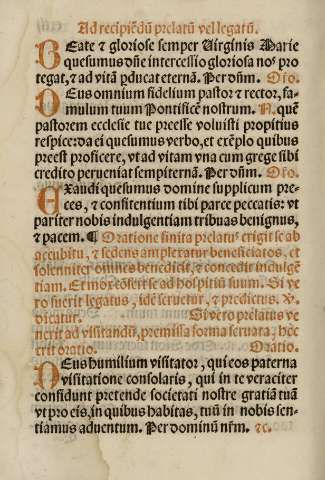 Ad recipiēdū prelatū vel legatū.
BEate & gloriose semper Uirginis Marie
quesumus dn̄e intercessio gloriosa nos pro
tegat, & ad vitā ꝑducat eternā. Per dn̄m. Oro.
DEus omnium fidelium pastor & rector, fa-
mulum tuum Pontificē nostrum. N. quē
pastorem ecclesie tue preesse voluisti propitius
respice: da ei quesumus verbo, et exēplo quibus
preest proficere, vt ad vitam vna cum grege sibi
credito perueniat sempiternā. Per dn̄m. Oro.
EXaudi quesumus domine supplicum pre-
ces, & confitentium tibi parce peccatis: vt
pariter nobis indulgentiam tribuas benignus,
& pacem. ¶ Oratione finita prelatus erigit se ab
accubitu, & sedens amplexatur beneficiatos, et
solenniter omnes benedicit, & concedit indulgē
tiam. Et mox cōsert se ad hospitiū suum. Si ve
ro fuerit legatus, idē seruetur, & predictus. ℣.
dicatur. Si vero prelatus ve
nerit ad visitandū, premissa forma seruata, hec
erit oratio. Oratio.
DEus humilium visitator, qui eos paterna
visitatione consolaris, qui in te veraciter
confidunt pretende societati nostre gratiā tuā
vt pro eis, in quibus habitas, tuū in nobis sen-
tiamus aduentum. Per dominū nr̄m. &c.